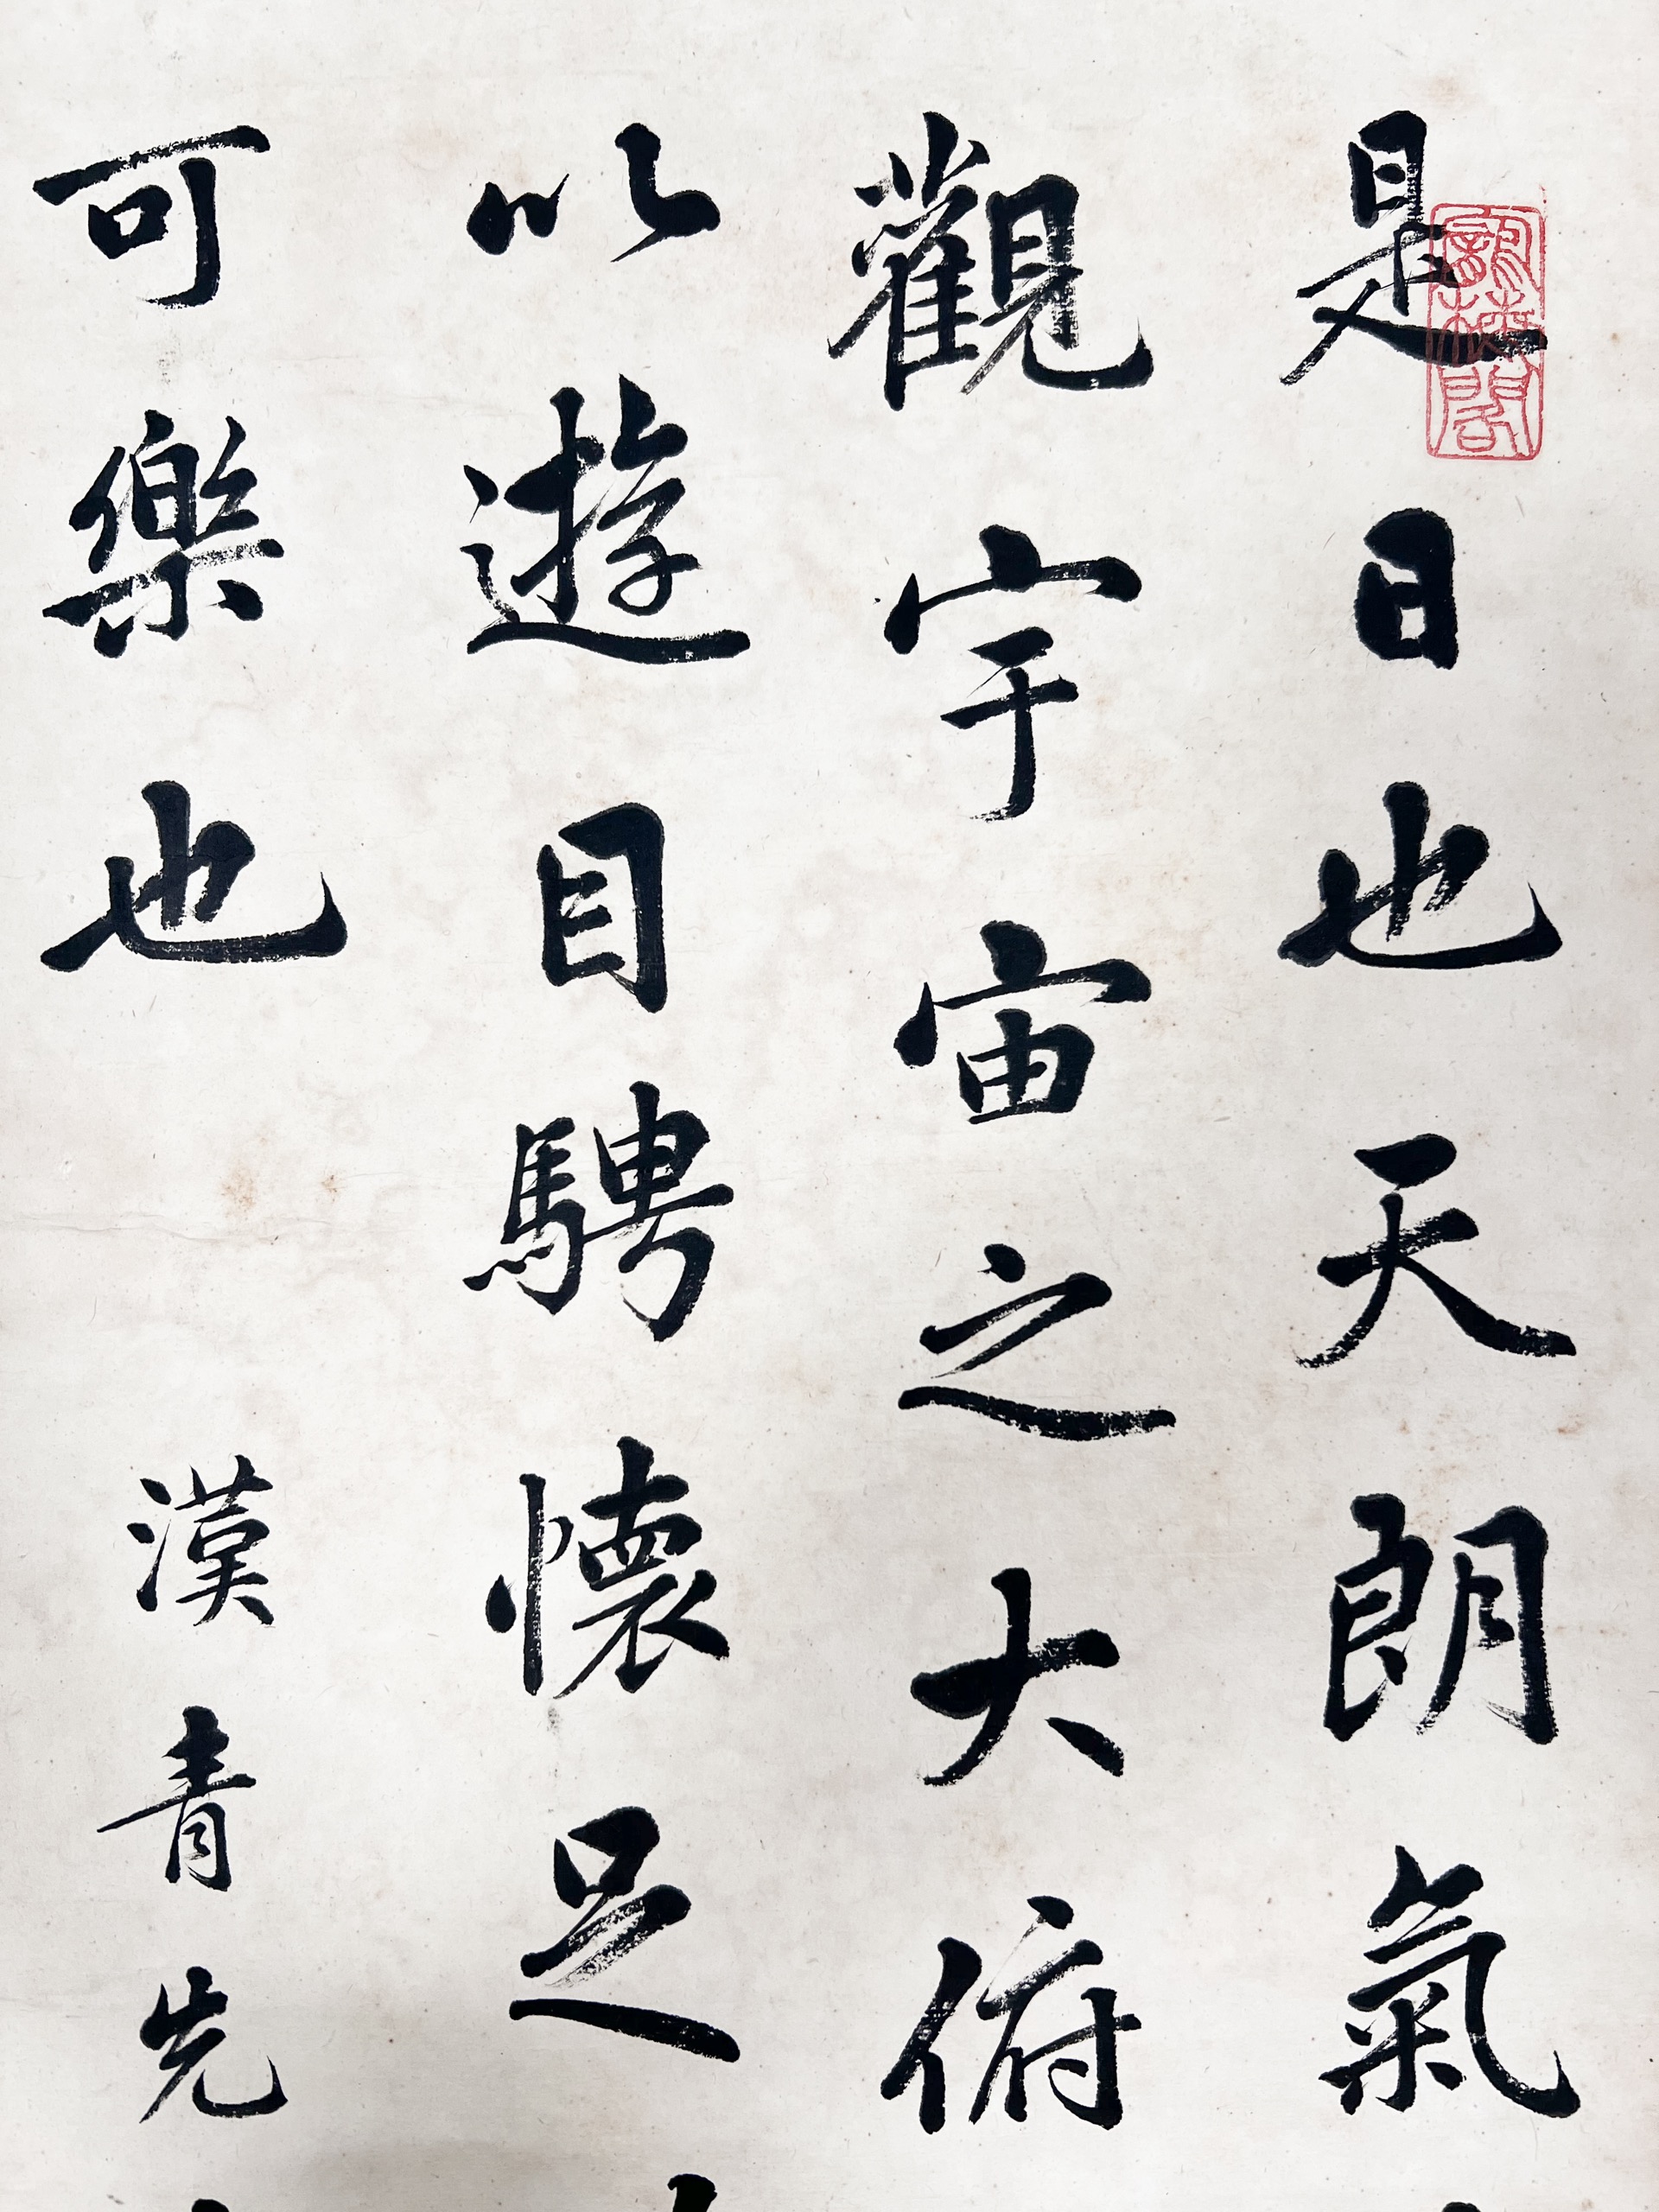 是日也天朗氣
觀宇宙之大俯
以遊目騁懷足
可樂也 漢青先